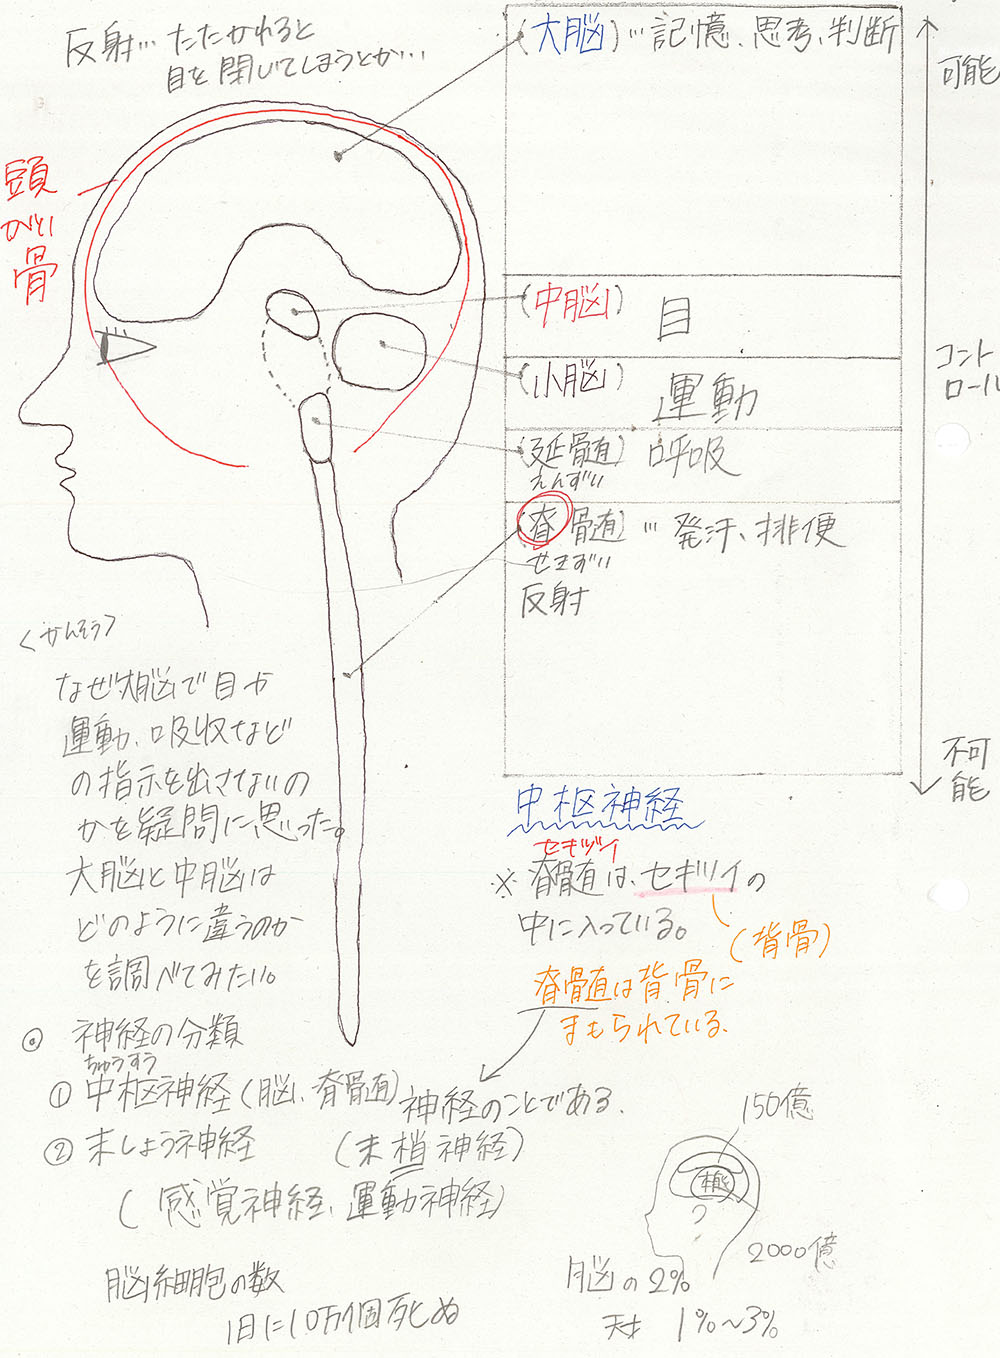 反射… たたかれると
目を閉じてしまうとか…
頭
がい
骨
(大脳)…記憶、思考、判断
(中脳) 目
(小脳) 運動
(延髄) 呼吸
えんずい
(脊髄)…発汗、排便
せきずい
反射
可能
コント
ロール
不可
能
<かんそう>
なぜ大脳で目や
運動、吸収など
の指示を出さないの
かを疑問に思った。
大脳と中脳は
どのように違うのか
を調べてみたい。
中枢神経
セキヅイ
※脊髄は、セキツイの
中に入っている。
(背骨)
脊髄は背骨に
まもられている。
◎ 神経の分類
ちゅうすう
① 中枢神経(脳、脊髄)
神経のことである。
② 末しょう神経 (末梢神経)
(感覚神経、運動神経)
脳細胞の数
1日に10万個死ぬ
150億
本能
?
2000億
脳の2%
天才 1%~3%